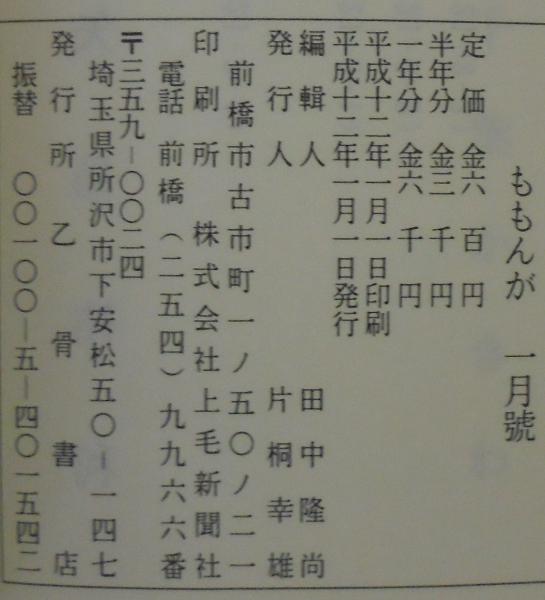 ももんが 一月號
定価 金六百円
半年分 金三千円
一年分 金六千円
平成十二年一月一日印刷
平成十二年一月一日発行
編輯人 田中隆尚
発行人 片桐幸雄
前橋市古市町一ノ五〇ノ二一
印刷所 株式会社上毛新聞社
電話 前橋(二五四)九九六六番
〒三五九-〇〇二四
埼玉県所沢市下安松五〇-一四七
発行所 乙骨書店
振替 〇〇一〇〇-五-四〇一五四二